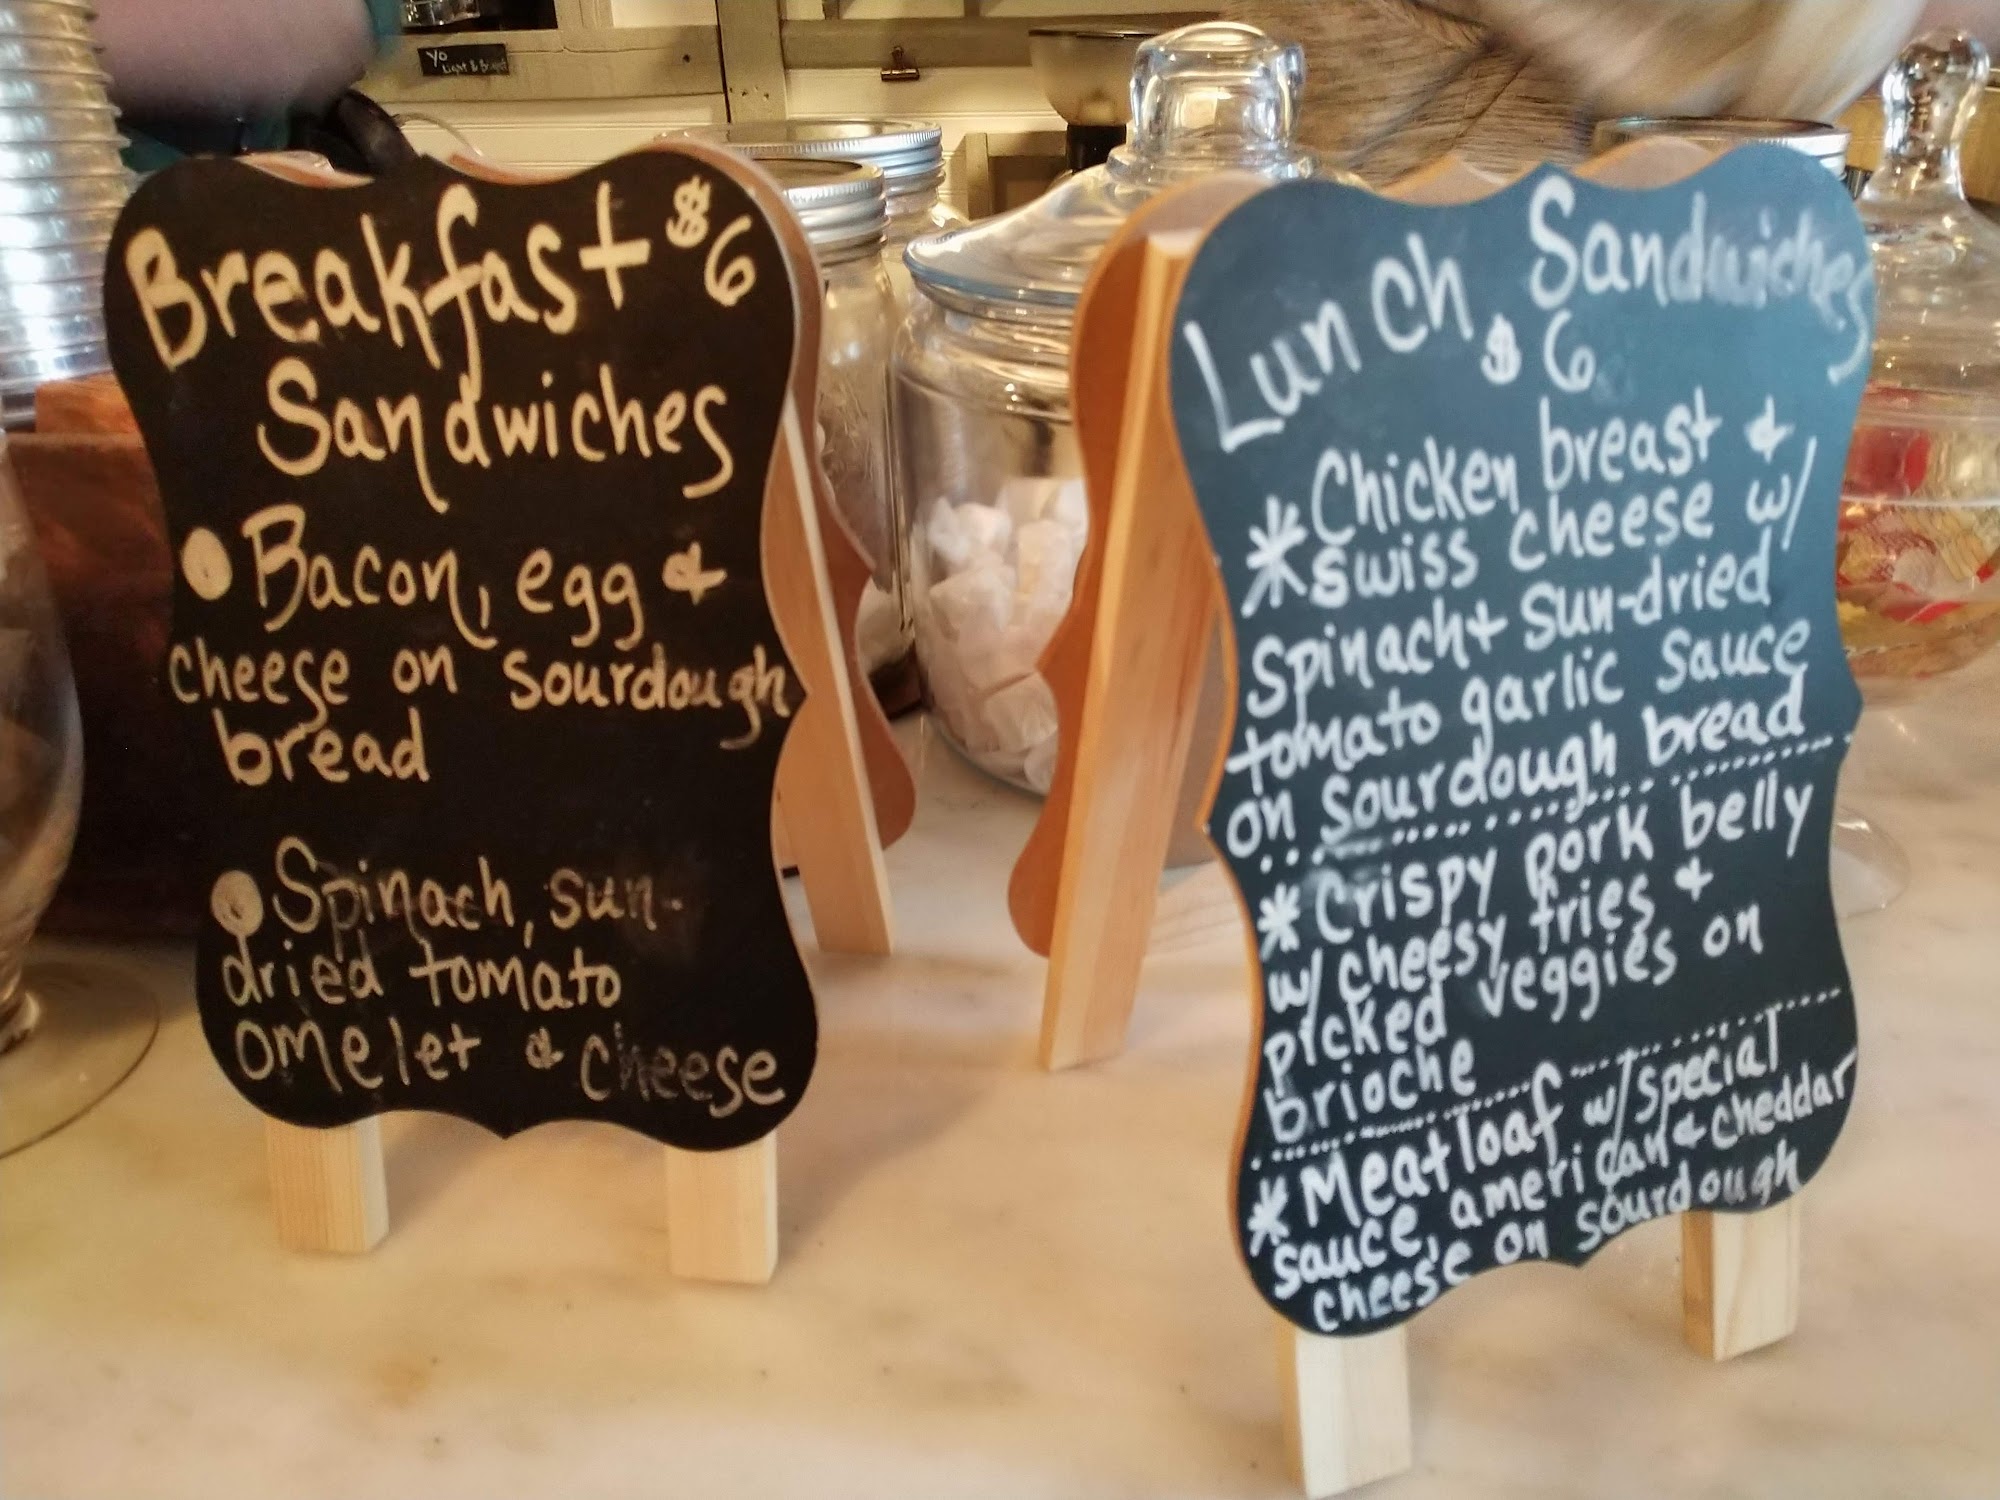 Yo
Breakfast $6
Sandwiches
Bacon, egg &
cheese on sourdough
bread
Spinach, sun-
dried tomato
omelet & cheese
Lunch Sandwiches
$6
* Chicken breast &
swiss cheese w/
spinach + sun-dried
tomato garlic sauce
on sourdough bread
* Crispy pork belly
w/ cheesy fries +
picked veggies on
brioche
* Meatloaf w/ special
sauce, american & cheddar
cheese on sourdough